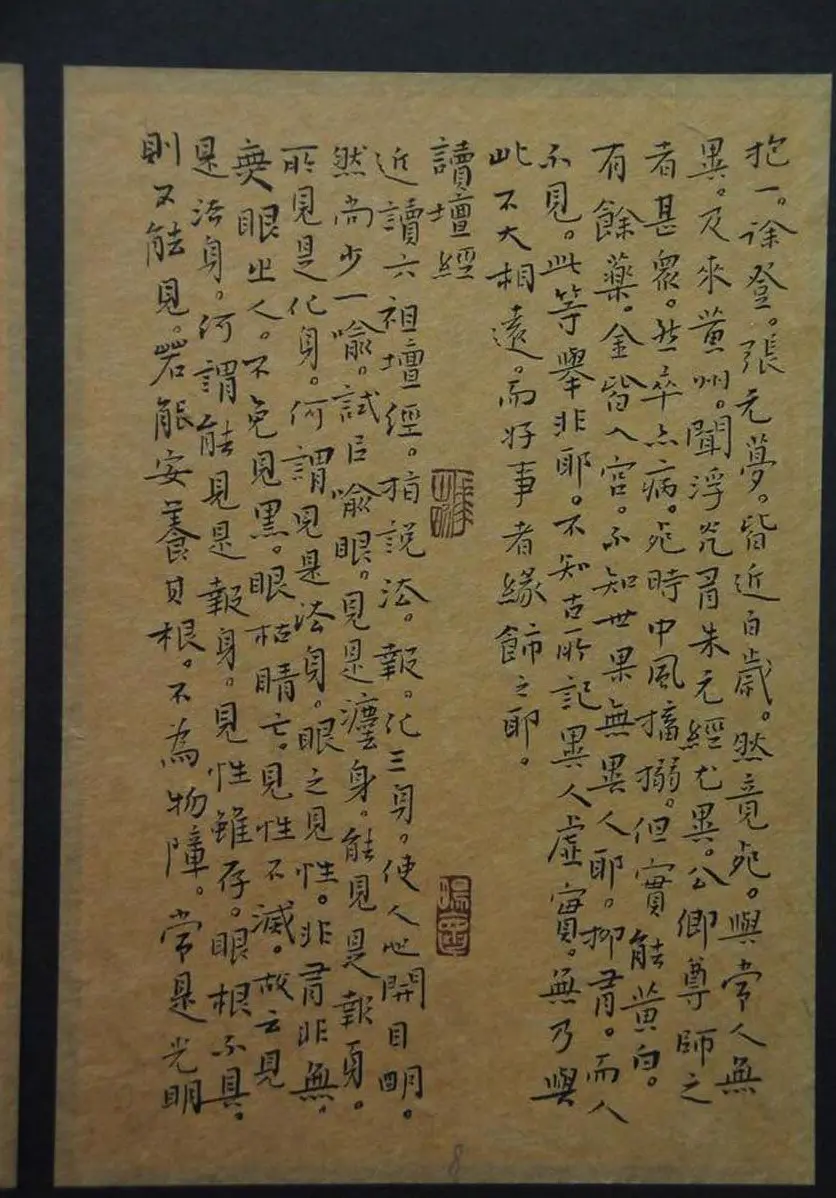 抱一。徐登。張元夢。皆近百歲。然竟死。與常人無
異。及來黃州。聞浮光有朱元經尤異。公卿尊師之
者甚眾。然卒亦病。死時中風搐搦。但實能黃白。
有餘藥。金皆入官。不知世果無異人耶。抑有。而人
不見。此等舉非耶。不知古所記異人虛實。無乃與
此不大相遠。而好事者緣飾之耶。
讀壇經
近讀六祖壇經。指說法。報。化三身。使人心開目明。
然尚少一喻。試以喻眼。見是灋身。能見是報身。
所見是化身。何謂見是法身。眼之見性。非有非無。
無眼之人。不免見黑。眼枯睛亡。見性不滅。故云見
是法身。何謂能見是報身。見性雖存。眼根不具。
則不能見。若能安養其根。不為物障。常是光明
8